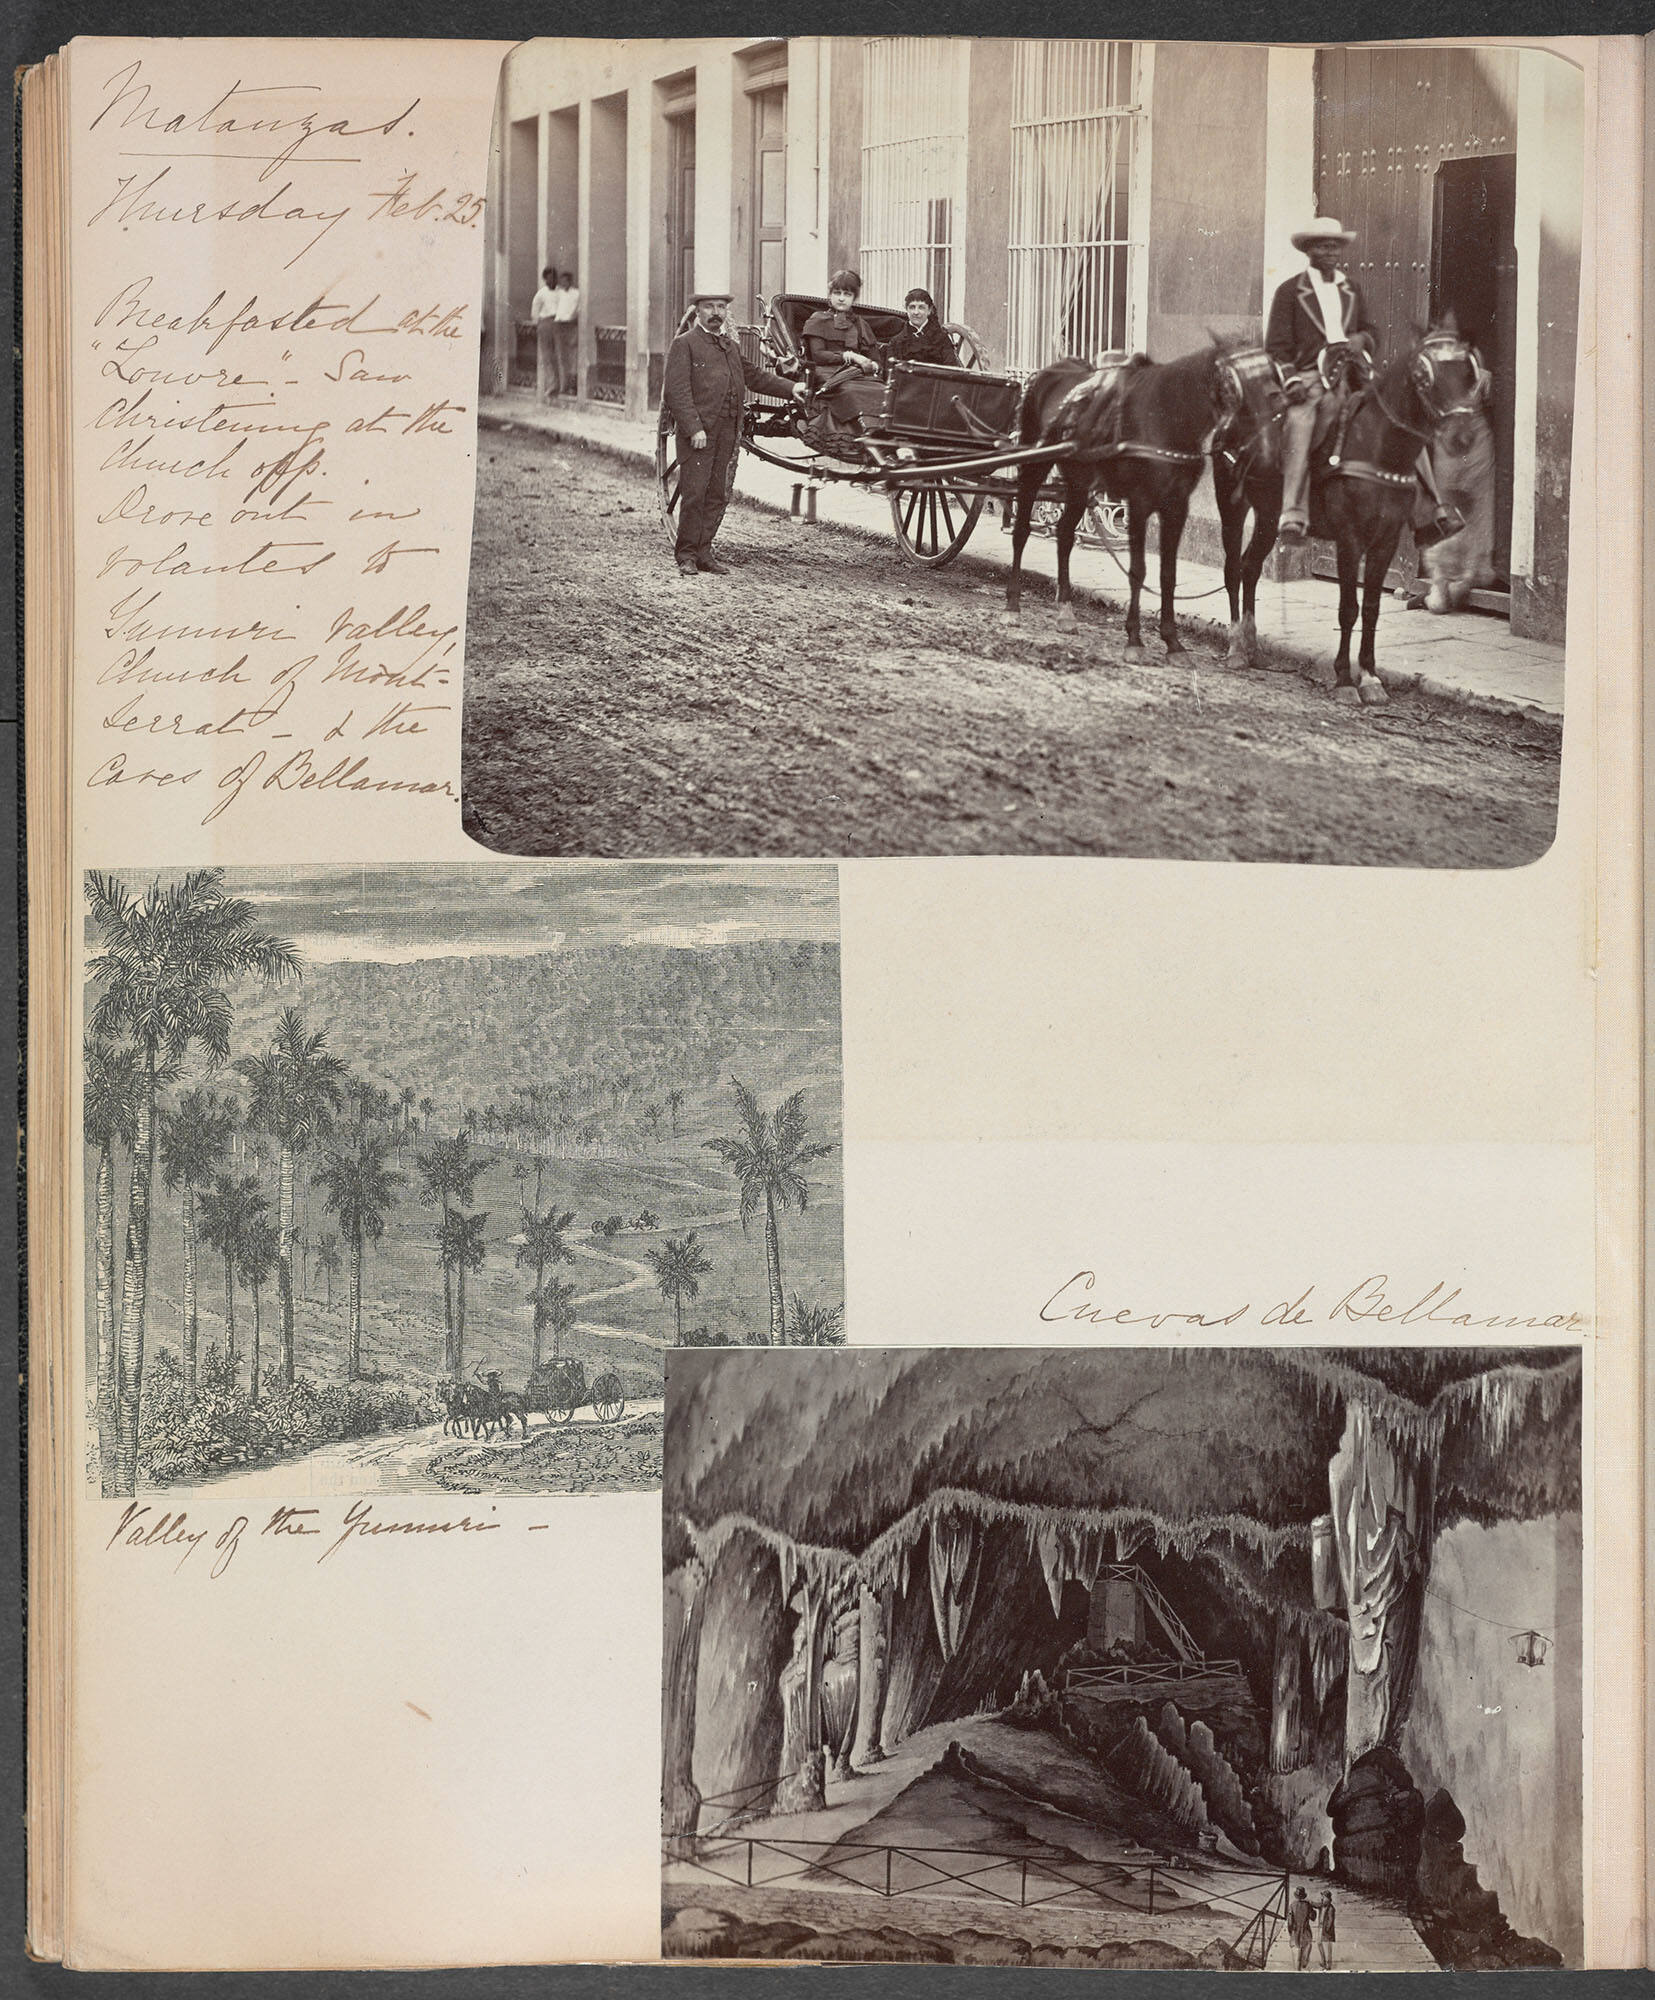 Matanzas.
Thursday Feb. 25.
Breakfasted at the
"Louvre" - Saw
Christening at the
Church opp.
Drove out in
volantes to
Yumuri Valley,
Church of Mont-
serrat - & the
Caves of Bellamar.
Cuevas de Bellamar.
Valley of the Yumuri -